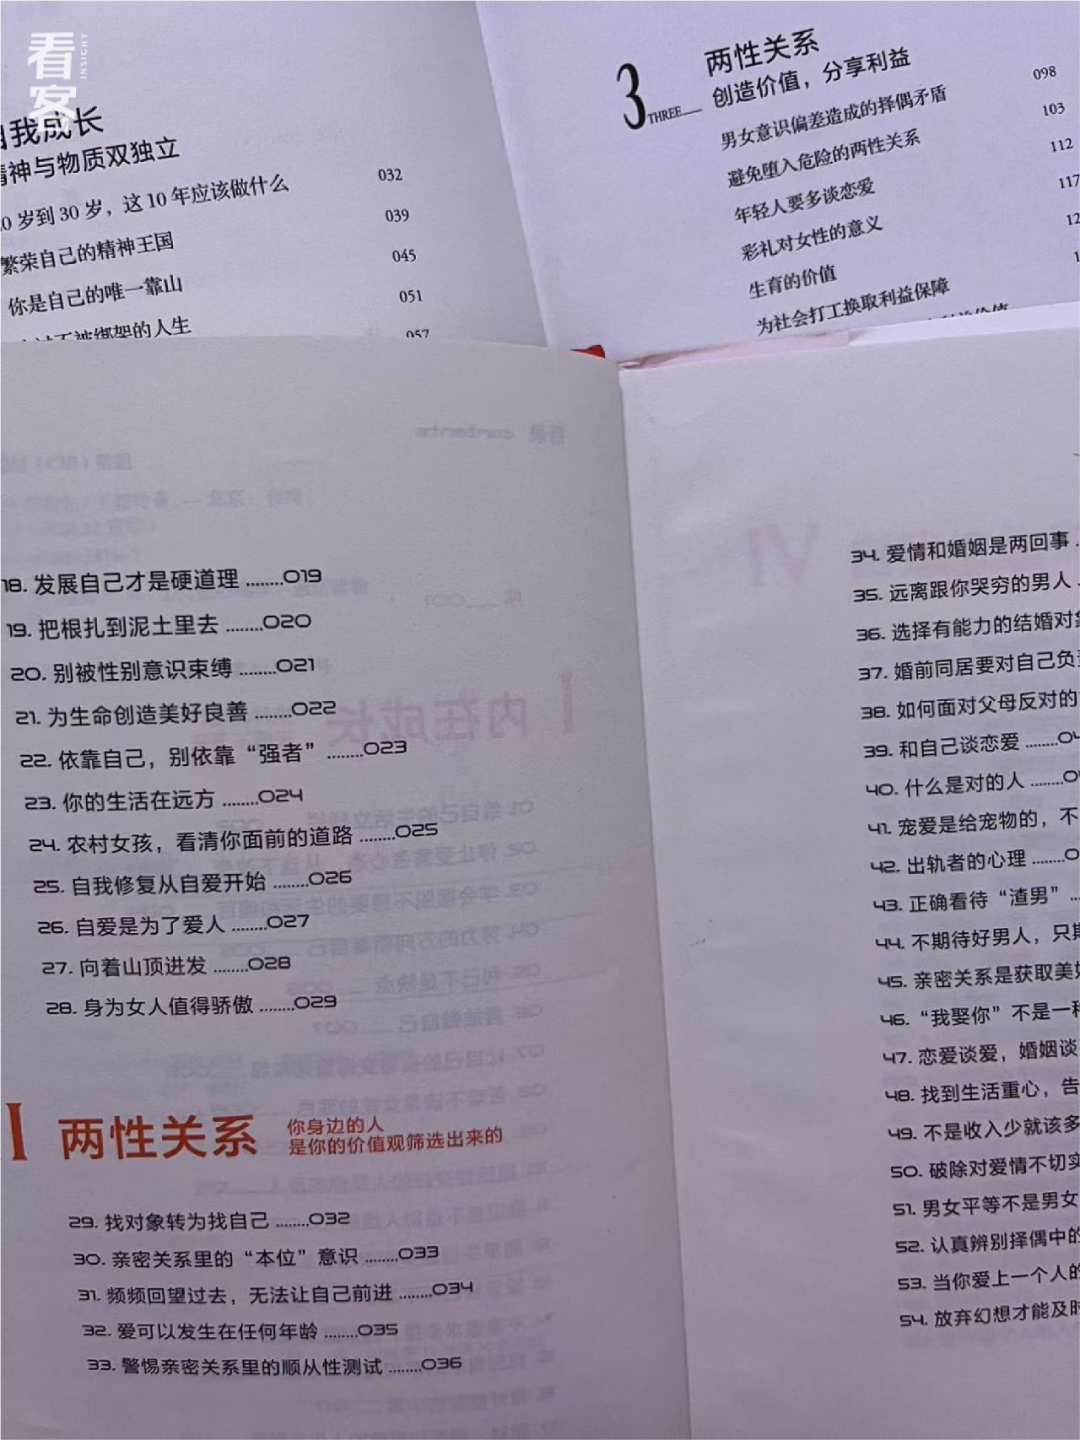 看客
INSIGHT
自我成长
精神与物质双独立
0岁到30岁，这10年应该做什么 032
繁荣自己的精神王国 039
你是自己的唯一靠山 045
不被绑架的人生 051
057
3
THREE
两性关系
创造价值，分享利益
男女意识偏差造成的择偶矛盾 098
避免堕入危险的两性关系 103
年轻人要多谈恋爱 112
彩礼对女性的意义 117
生育的价值 12
为社会打工换取利益保障 1
18. 发展自己才是硬道理 ........019
19. 把根扎到泥土里去 ........020
20. 别被性别意识束缚 ........021
21. 为生命创造美好良善 ........022
22. 依靠自己，别依靠“强者” ........023
23. 你的生活在远方 ........024
24. 农村女孩，看清你面前的道路 ........025
25. 自我修复从自爱开始 ........026
26. 自爱是为了爱人 ........027
27. 向着山顶进发 ........028
28. 身为女人值得骄傲 ........029
两性关系
你身边的人
是你的价值观筛选出来的
29. 找对象转为找自己 ........032
30. 亲密关系里的“本位”意识 ........033
31. 频频回望过去，无法让自己前进 ........034
32. 爱可以发生在任何年龄 ........035
33. 警惕亲密关系里的顺从性测试 ........036
34. 爱情和婚姻是两回事
35. 远离跟你哭穷的男人
36. 选择有能力的结婚对象
37. 婚前同居要对自己负责
38. 如何面对父母反对的
39. 和自己谈恋爱 ........04
40. 什么是对的人 ........0
41. 宠爱是给宠物的，不
42. 出轨者的心理 ........0
43. 正确看待“渣男”
44. 不期待好男人，只期
45. 亲密关系是获取美好
46. “我娶你”不是一种
47. 恋爱谈爱，婚姻谈
48. 找到生活重心，告
49. 不是收入少就该多
50. 破除对爱情不切实
51. 男女平等不是男女
52. 认真辨别择偶中的
53. 当你爱上一个人的
54. 放弃幻想才能及时